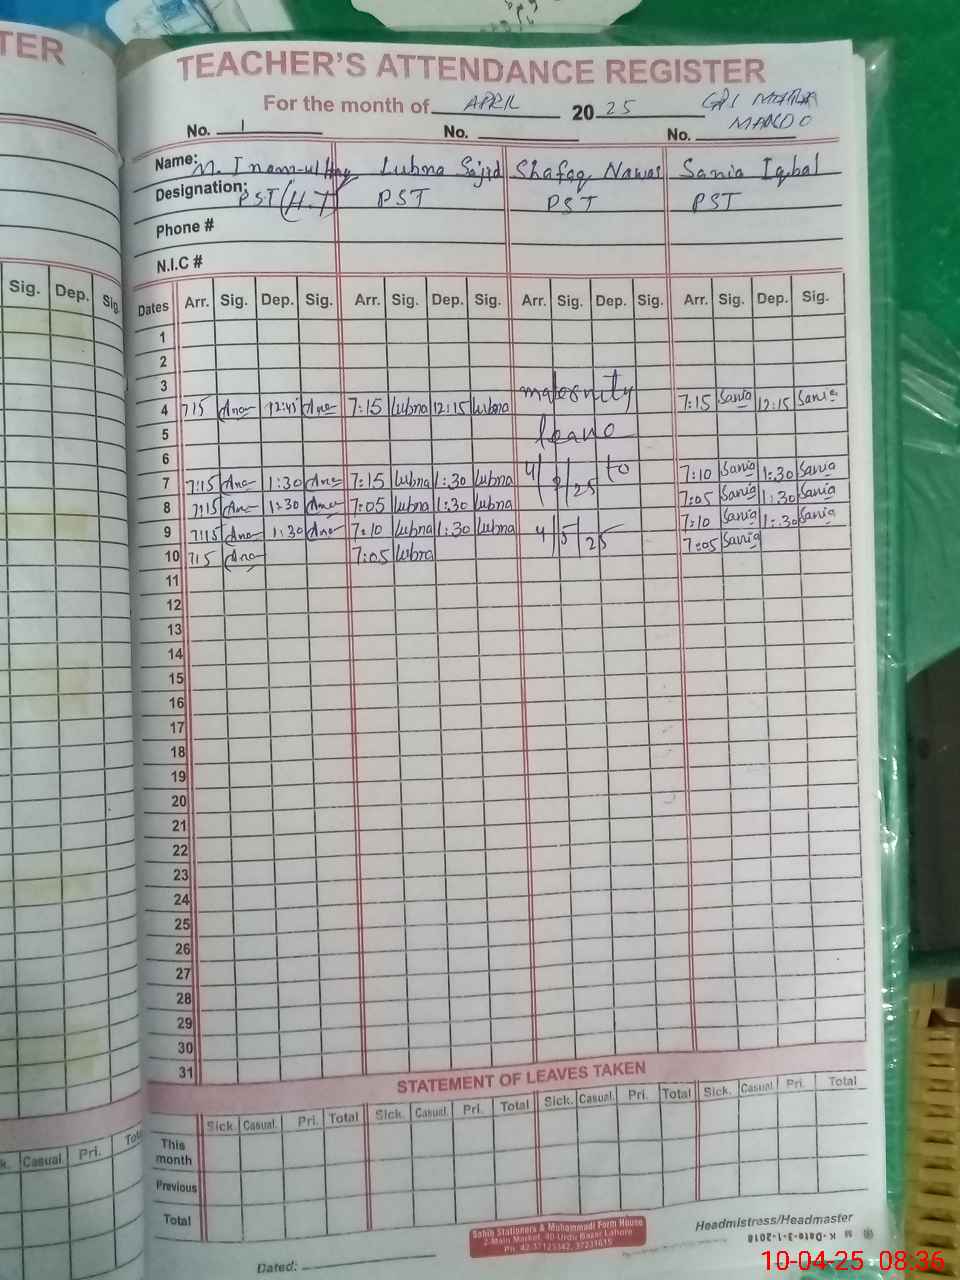 TER
TEACHER'S ATTENDANCE REGISTER
For the month of APRIL 2025
No. 1 No. No.
Name: M. Inam-ul-Haq Lubna Sajid Shafaq Nawaz Sania Iqbal
Designation: PST (H.T) PST PST PST
Phone #
N.I.C #
Sig. Dep. Sig.
Dates Arr. Sig. Dep. Sig. Arr. Sig. Dep. Sig. Arr. Sig. Dep. Sig. Arr. Sig. Dep. Sig.
1
2
3 maternity
4 715 12:15 7:15 Lubna 12:15 Lubna 7:15 Sania 12:15 Sania
5 leave
6
7 7:15 1:30 7:15 Lubna 1:30 Lubna 4/ /25 to 7:10 Sania 1:30 Sania
8 7:15 1:30 7:05 Lubna 1:30 Lubna 7:05 Sania 1:30 Sania
9 7:15 1:30 7:10 Lubna 1:30 Lubna 4/5/25 7:10 Sania 1:30 Sania
10 715 7:05 Lubna 7:05 Sania
11
12
13
14
15
16
17
18
19
20
21
22
23
24
25
26
27
28
29
30
31
STATEMENT OF LEAVES TAKEN
Sick. Casual. Pri. Total Sick. Casual. Pri. Total Sick. Casual. Pri. Total Sick. Casual. Pri. Total
k. Casual Pri. Total
This month
Previous
Total
Sahib Stationers & Muhammadi Form House
2-Main Market, 40-Urdu Bazar Lahore
Ph: 42-37125342, 37231615
Headmistress/Headmaster
M K -Date-3-1-2018
Dated:
10-04-25 08:36